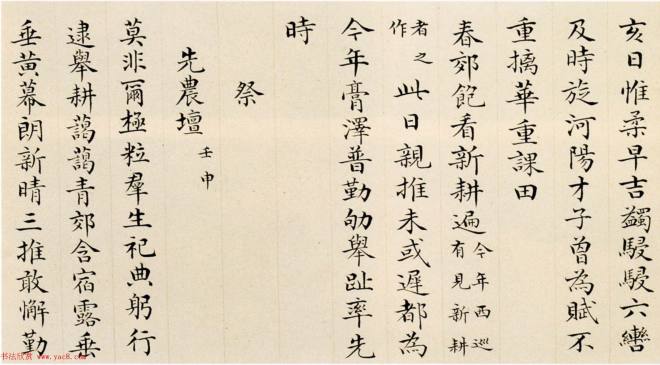 亥日惟柔早吉蠲駸駸六轡
及時旋河陽才子曾為賦不
重摛華重課田
春郊飽看新耕遍今年西巡有見新耕
者之作此日親推未或遲都為
今年膏澤普勤劬舉趾率先
時
祭
先農壇壬申
莫非爾極粒羣生祀典躬行
逮舉耕藹藹青郊含宿露垂
垂黃幕朗新晴三推敢懈勤
书法欣赏 www.yac8.com